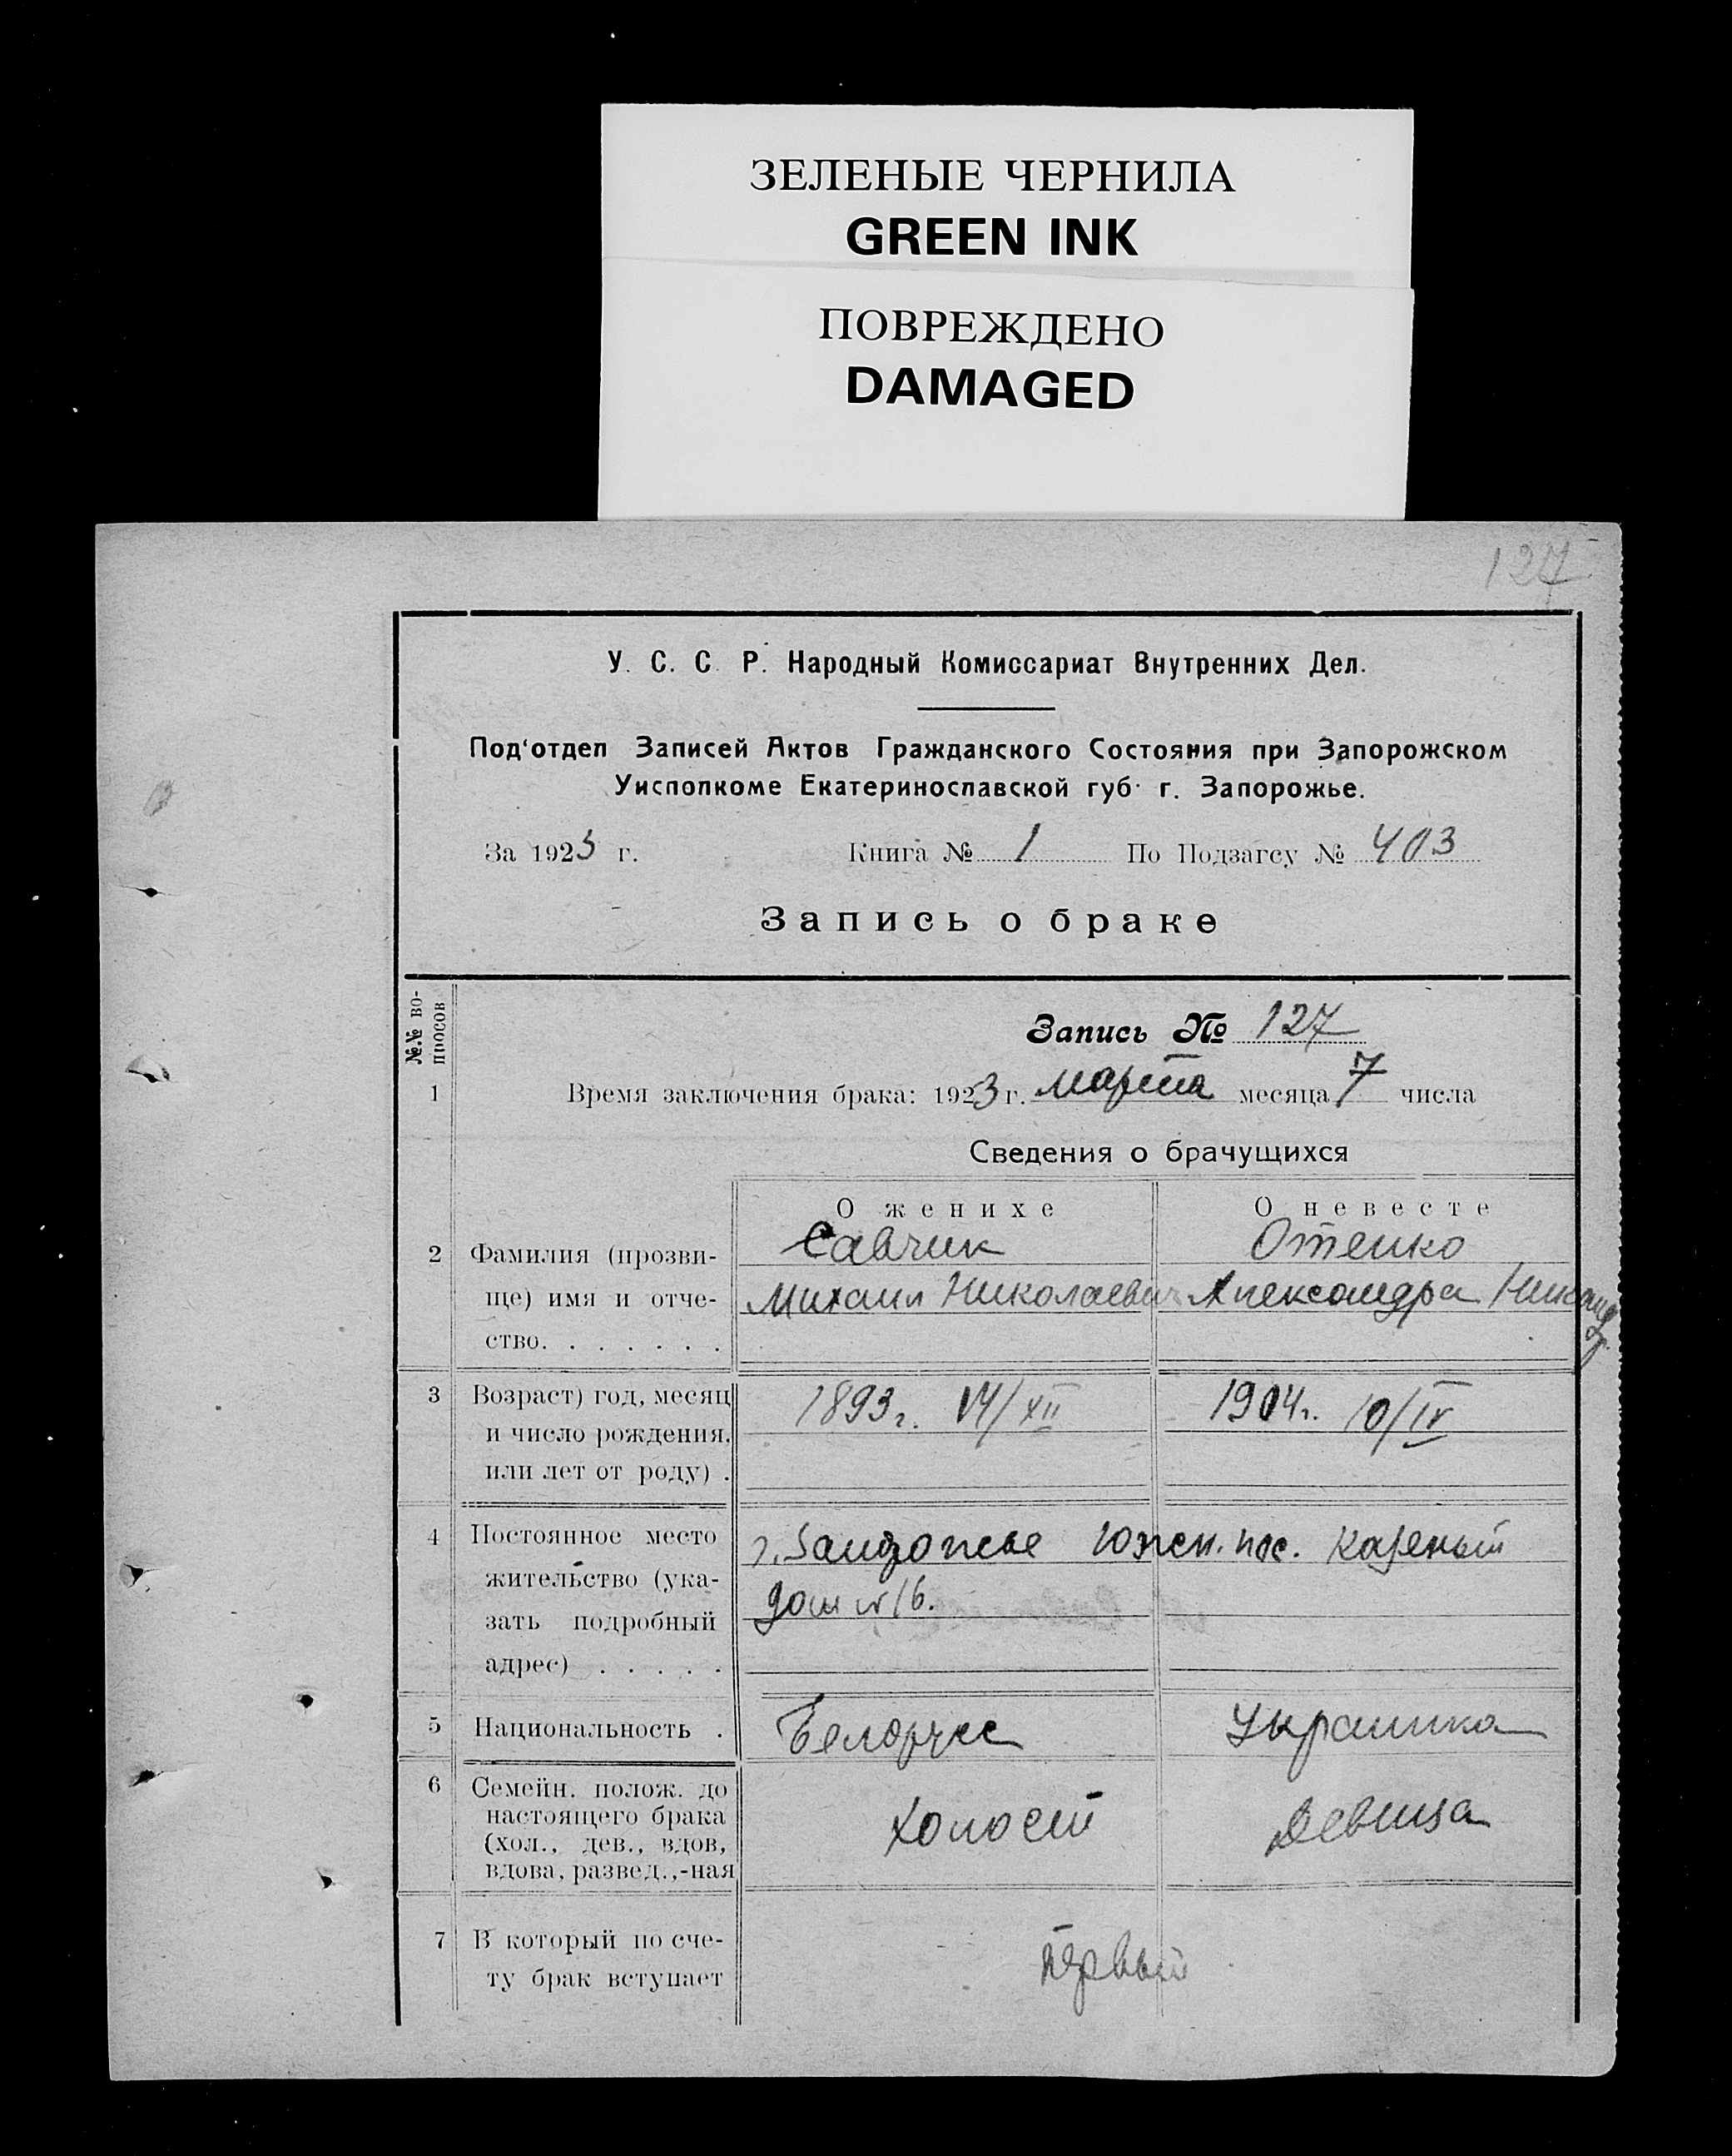 ЗЕЛЕНЫЕ ЧЕРНИЛА
GREEN INK
ПОВРЕЖДЕНО
DAMAGED
127
У. С. С. Р. Народный Комиссариат Внутренних Дел.
Под‘отдел Записей Актов Гражданского Состояния при Запорожском
Уисполкоме Екатеринославской губ. г. Запорожье.
За 1923 г. Книга № 1 По Подзагсу № 403
Запись о браке
№.№ во-
просов
Запись № 127
1 Время заключения брака: 1923 г. марта месяца 7 числа
Сведения о брачущихся
О женихе О невесте
2 Фамилия (прозви- Савчик Отенко
ще) имя и отче- Михаил Николаевич Александра Никандр.
ство. . . . . . .
3 Возраст) год, месяц 1893 г. 1904 г. 10/IV
и число рождения,
или лет от роду) .
4 Постоянное место Южн. пос. Казеный
жительство (ука- дом № 16.
зать подробный
адрес) . . . . .
5 Национальность . Белорусс Украинка
6 Семейн. полож. до
настоящего брака Холост Девица
(хол., дев., вдов,
вдова, развед.,-ная
7 В который по сче- Первый
ту брак вступает